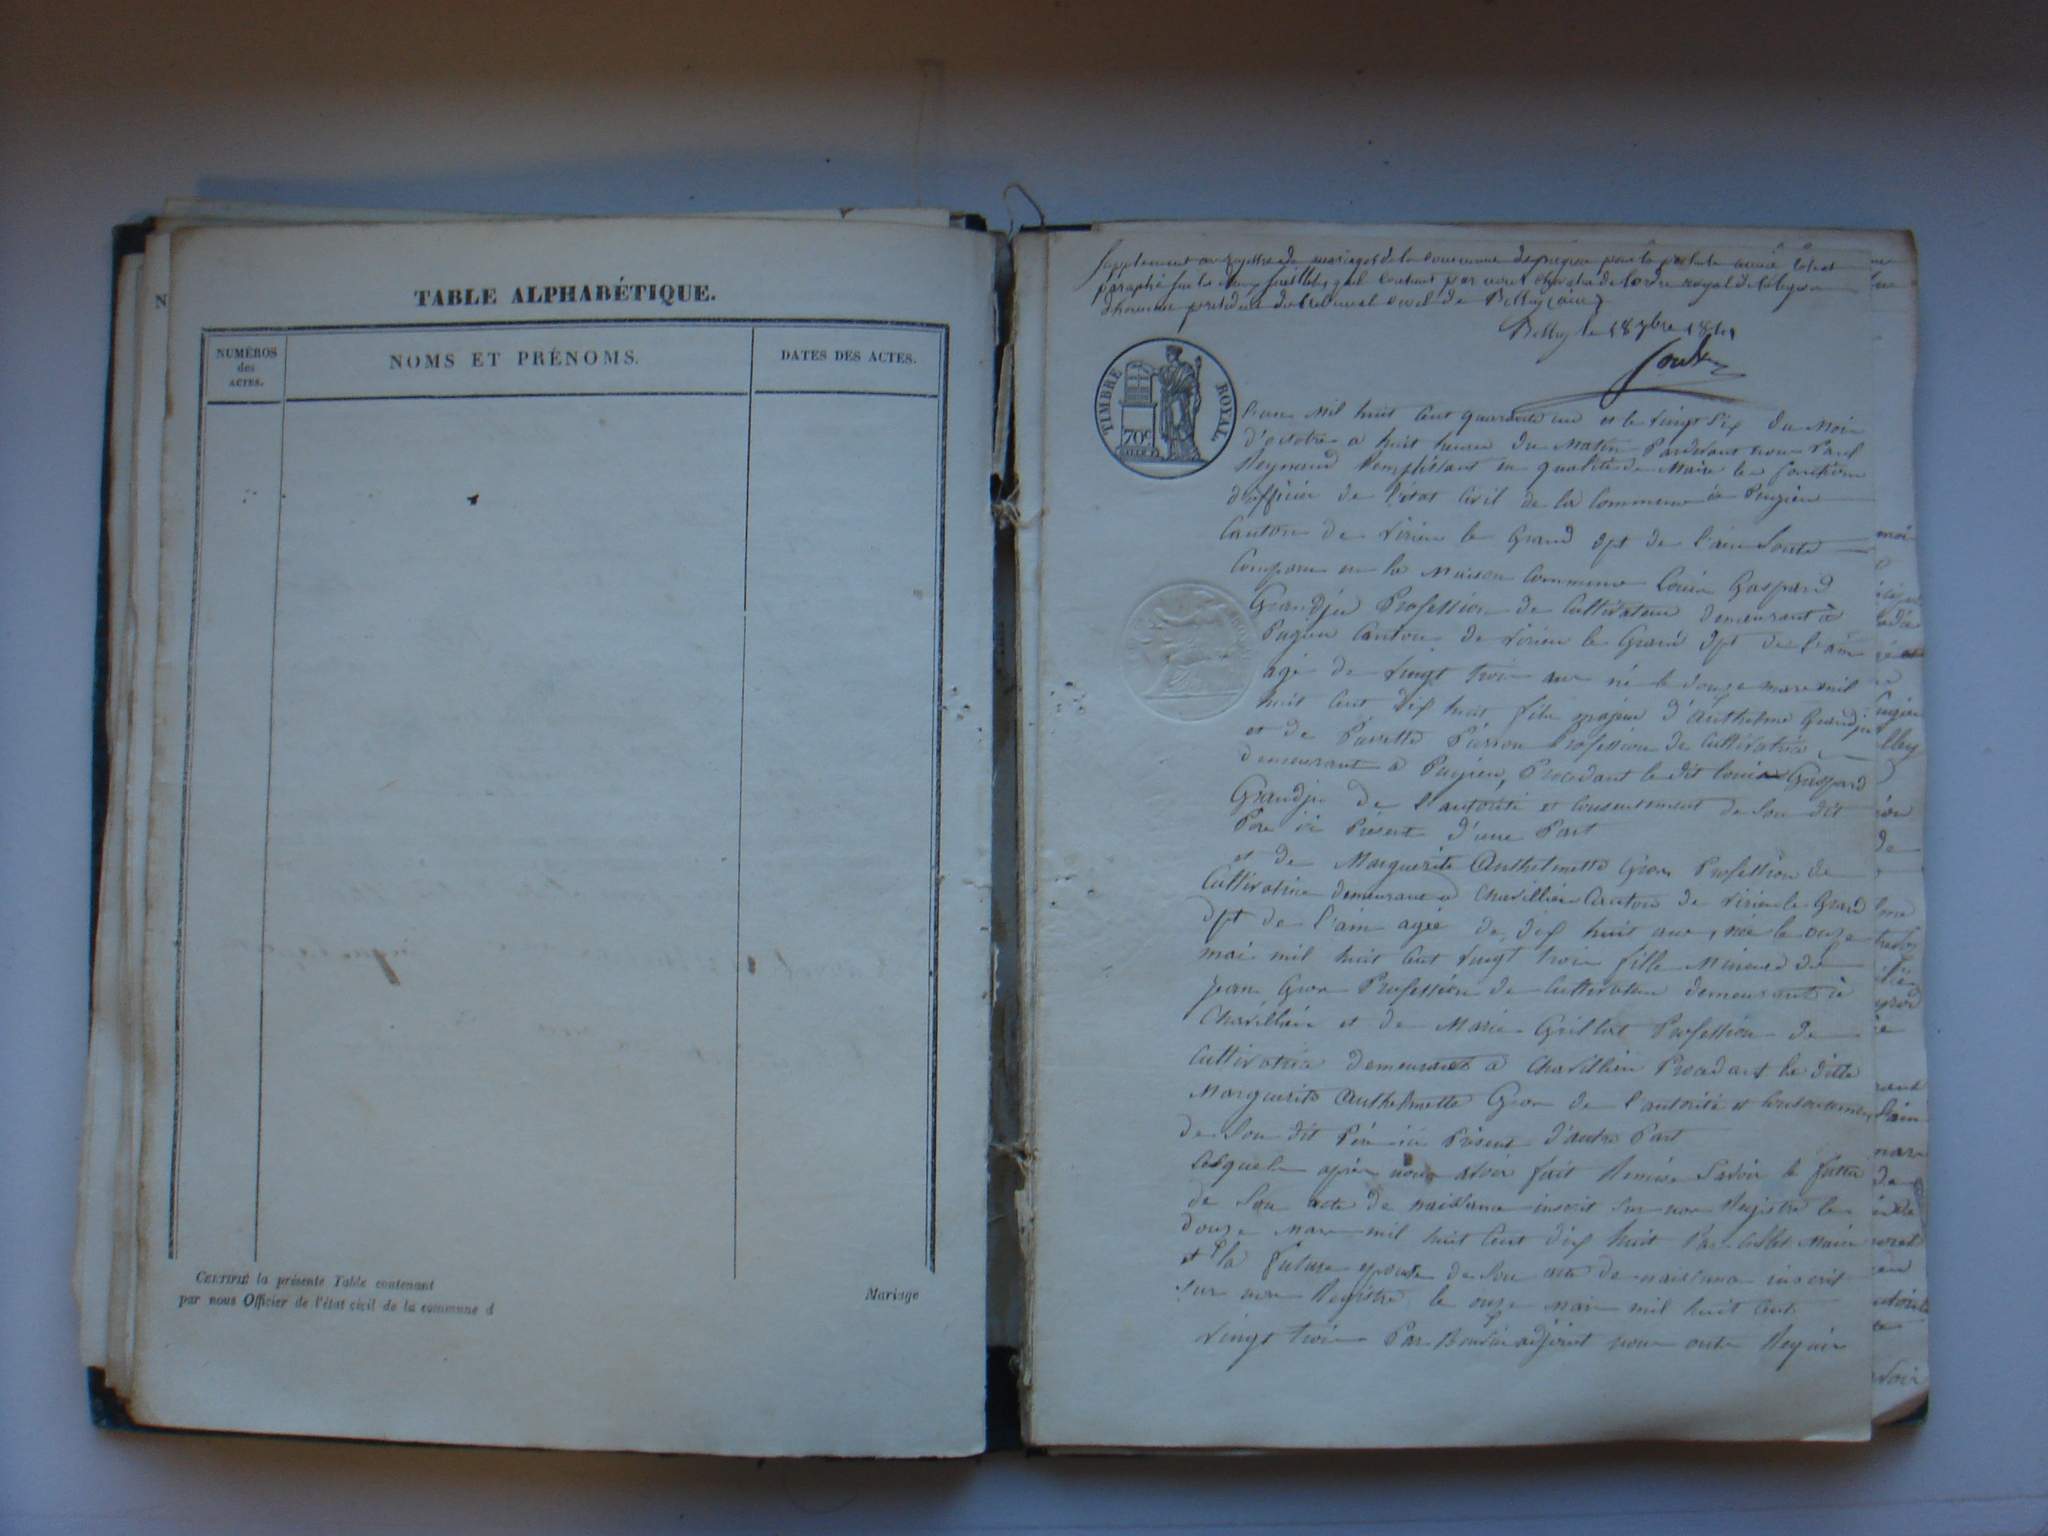 TABLE ALPHABÉTIQUE.
NUMÉROS
des
ACTES.
NOMS ET PRÉNOMS.
DATES DES ACTES.
CERTIFIÉ la présente Table contenant
par nous Officier de l'état civil de la commune d
Mariage
Supplement au registre de mariages de la commune de pugieu pour la présente année
paraphé sur les deux feuillets qu'il contient par nous chevalier de l'ordre royal de la légion
d'honneur président du tribunal civil de Belley (ain)
Belley le 18 7bre 1841
TIMBRE ROYAL
70c
L'an Mil huit Cent quarante un et le vingt six du Mois
d'octobre a huit heures du Matin Pardevant nous Paul
Reynaud Remplissant en qualité de Maire les fonctions
d'officier de l'état Civil de la Commune de Pugieu
Canton de Virieu le Grand dpt de l'ain Sont
Comparu en la Maison Commune Louis Gaspard
Grandju Profession de Cultivateur demeurant à
Pugieu Canton de Virieu le Grand dpt de l'ain
agé de Vingt trois ans né le douze mars mil
huit Cent dix huit, fils majeur d'Anthelme Grandju
et de Pierrette Profession de Cultivatrice
demeurant a Pugieu, Procédant le dit Louis Gaspard
Grandju de l'autorité et Consentement de Son dit
Père ici Présent d'une Part
et de Marguerite Anthelmette Gros Profession de
Cultivatrice demeurant a Chavillieu Canton de Virieu le Grand
dpt de l'ain agée de dix huit ans, née le onze
mai mil huit Cent Vingt trois fille Mineure de
Jean Gros Profession de Cultivateur demeurant à
Chavillieu et de Marie Grillot Profession de
Cultivatrice demeurant a Chavillieu Procédant la ditte
Marguerite Anthelmette Gros de l'autorité et Consentement
de Son dit Père ici Présent d'autre Part
Lesquels après nous avoir fait Remise Savoir le futur
de Son acte de naissance inscrit Sur nos Registre le
douze mars mil huit Cent dix huit Par Maire
et la future epouse de Son acte de naissance inscrit
sur nos Registre le onze mai mil huit Cent
Vingt trois Par adjoint nous ont Requis